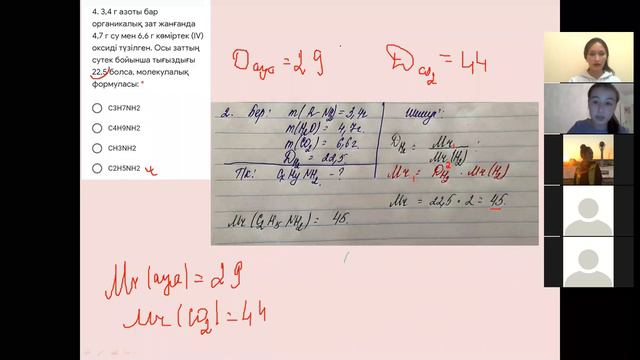 4. 3,4 г азоты бар
органикалық зат жанғанда
4,7 г су мен 6,6 г көміртек (IV)
оксиді түзілген. Осы заттың
сутек бойынша тығыздығы
22,5 болса. молекулалық
формуласы: *
C3H7NH2
C4H9NH2
CH3NH2
C2H5NH2
D ауа = 29
D CO2 = 44
2. Бер:
m(R-NH2) = 3,4г
m(H2O) = 4,7г.
m(CO2) = 6,6г.
DH2 = 22,5
Т/к: CxHyNH2 - ?
Mr (C2H5NH2) = 45.
Шешуі:
DH2 = Mr1 / Mr(H2)
Mr1 = DH2 · Mr(H2)
Mr = 22,5 * 2 = 45.
Mr (ауа) = 29
Mr (CO2) = 44